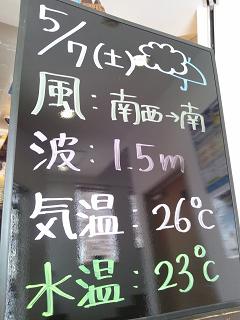 5/7(土)
風:南西→南
波:1.5m
気温:26℃
水温:23℃